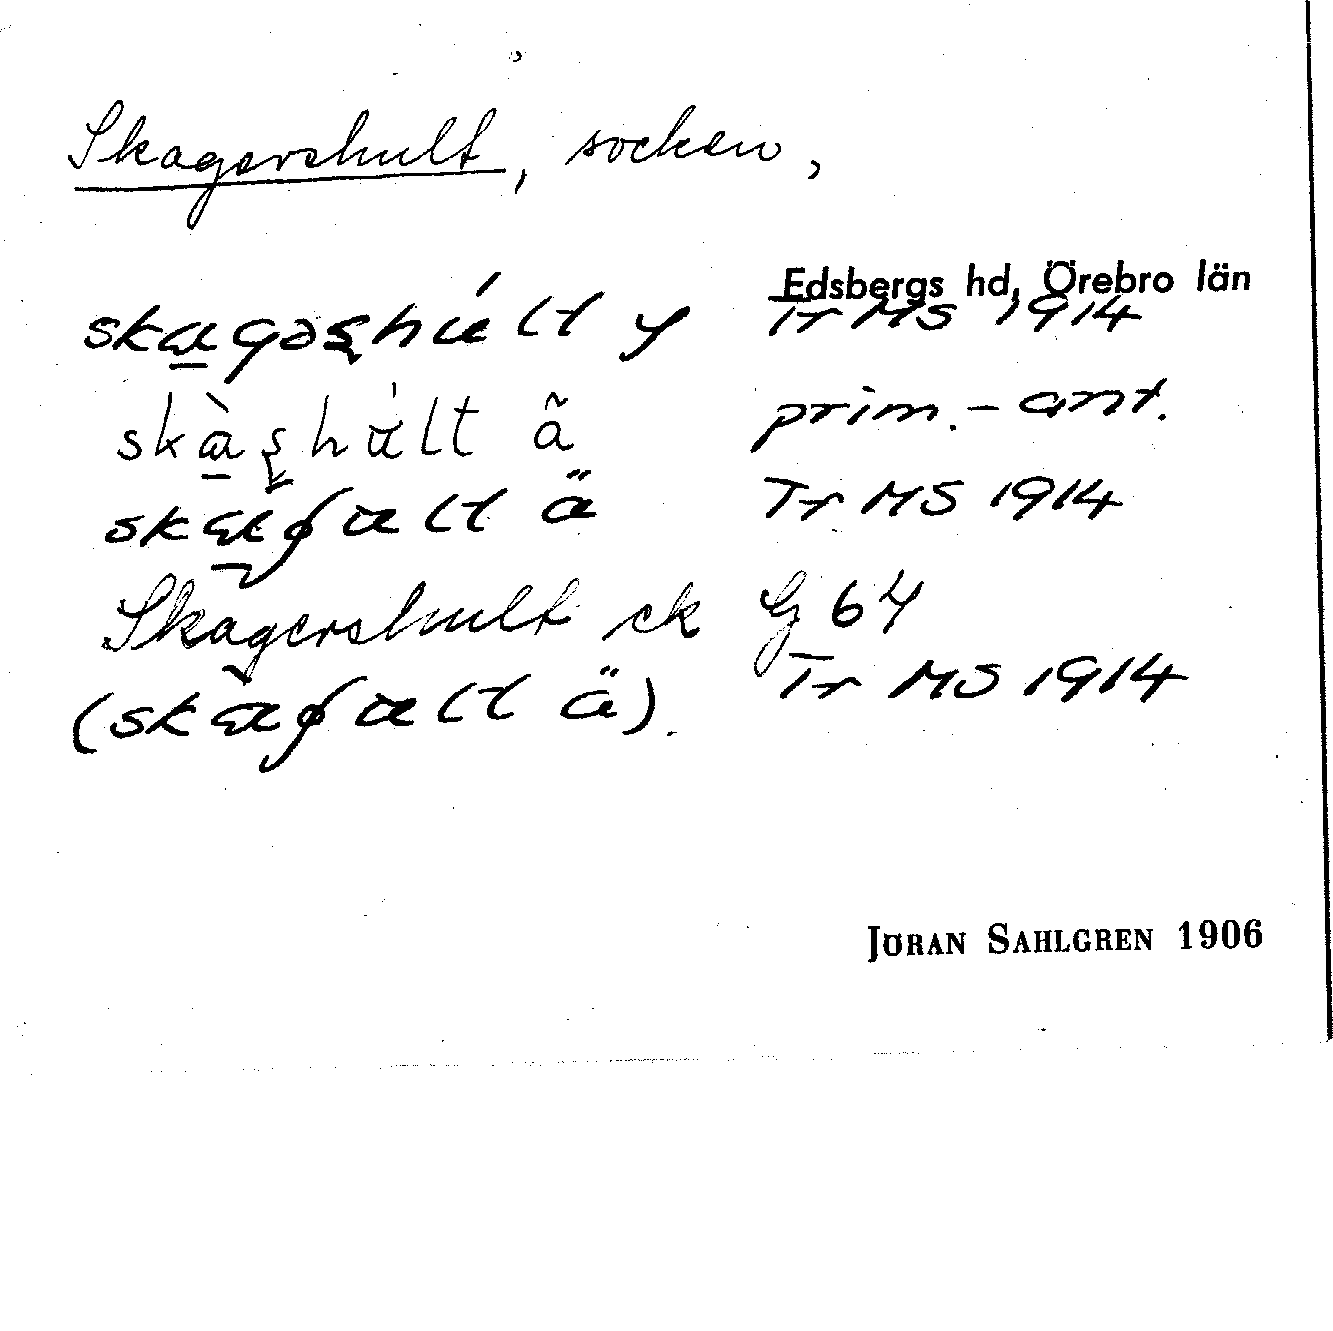 Skagershult, socken,
Edsbergs hd, Örebro län
skagəşhúlt y Tr MS 1914
skàşhúlt ã prim.-ant.
ält ä Tr MS 1914
Skagershult sk G 64
ä). Tr MS 1914
JÖRAN SAHLGREN 1906